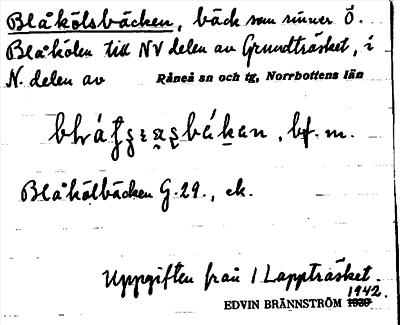 Blåkölsbäcken, bäck som rinner Ö.
Blåkölen till NV delen av Grundträsket, i
N. delen av Råneå sn och tg, Norrbottens län
bf. m.
Blåkölbäcken G.29., ek.
Uppgiften från 1 Lappträsket.
1942.
EDVIN BRÄNNSTRÖM 1939